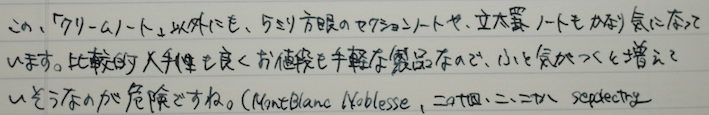 この、「クリームノート」以外にも、5ミリ方眼のセクションノートや、立太罫ノートもかなり気になって
います。比較的入手性も良くお値段も手軽な製品なので、ふと気がつくと増えて
いそうなのが危険ですね。(MontBlanc Noblesse,